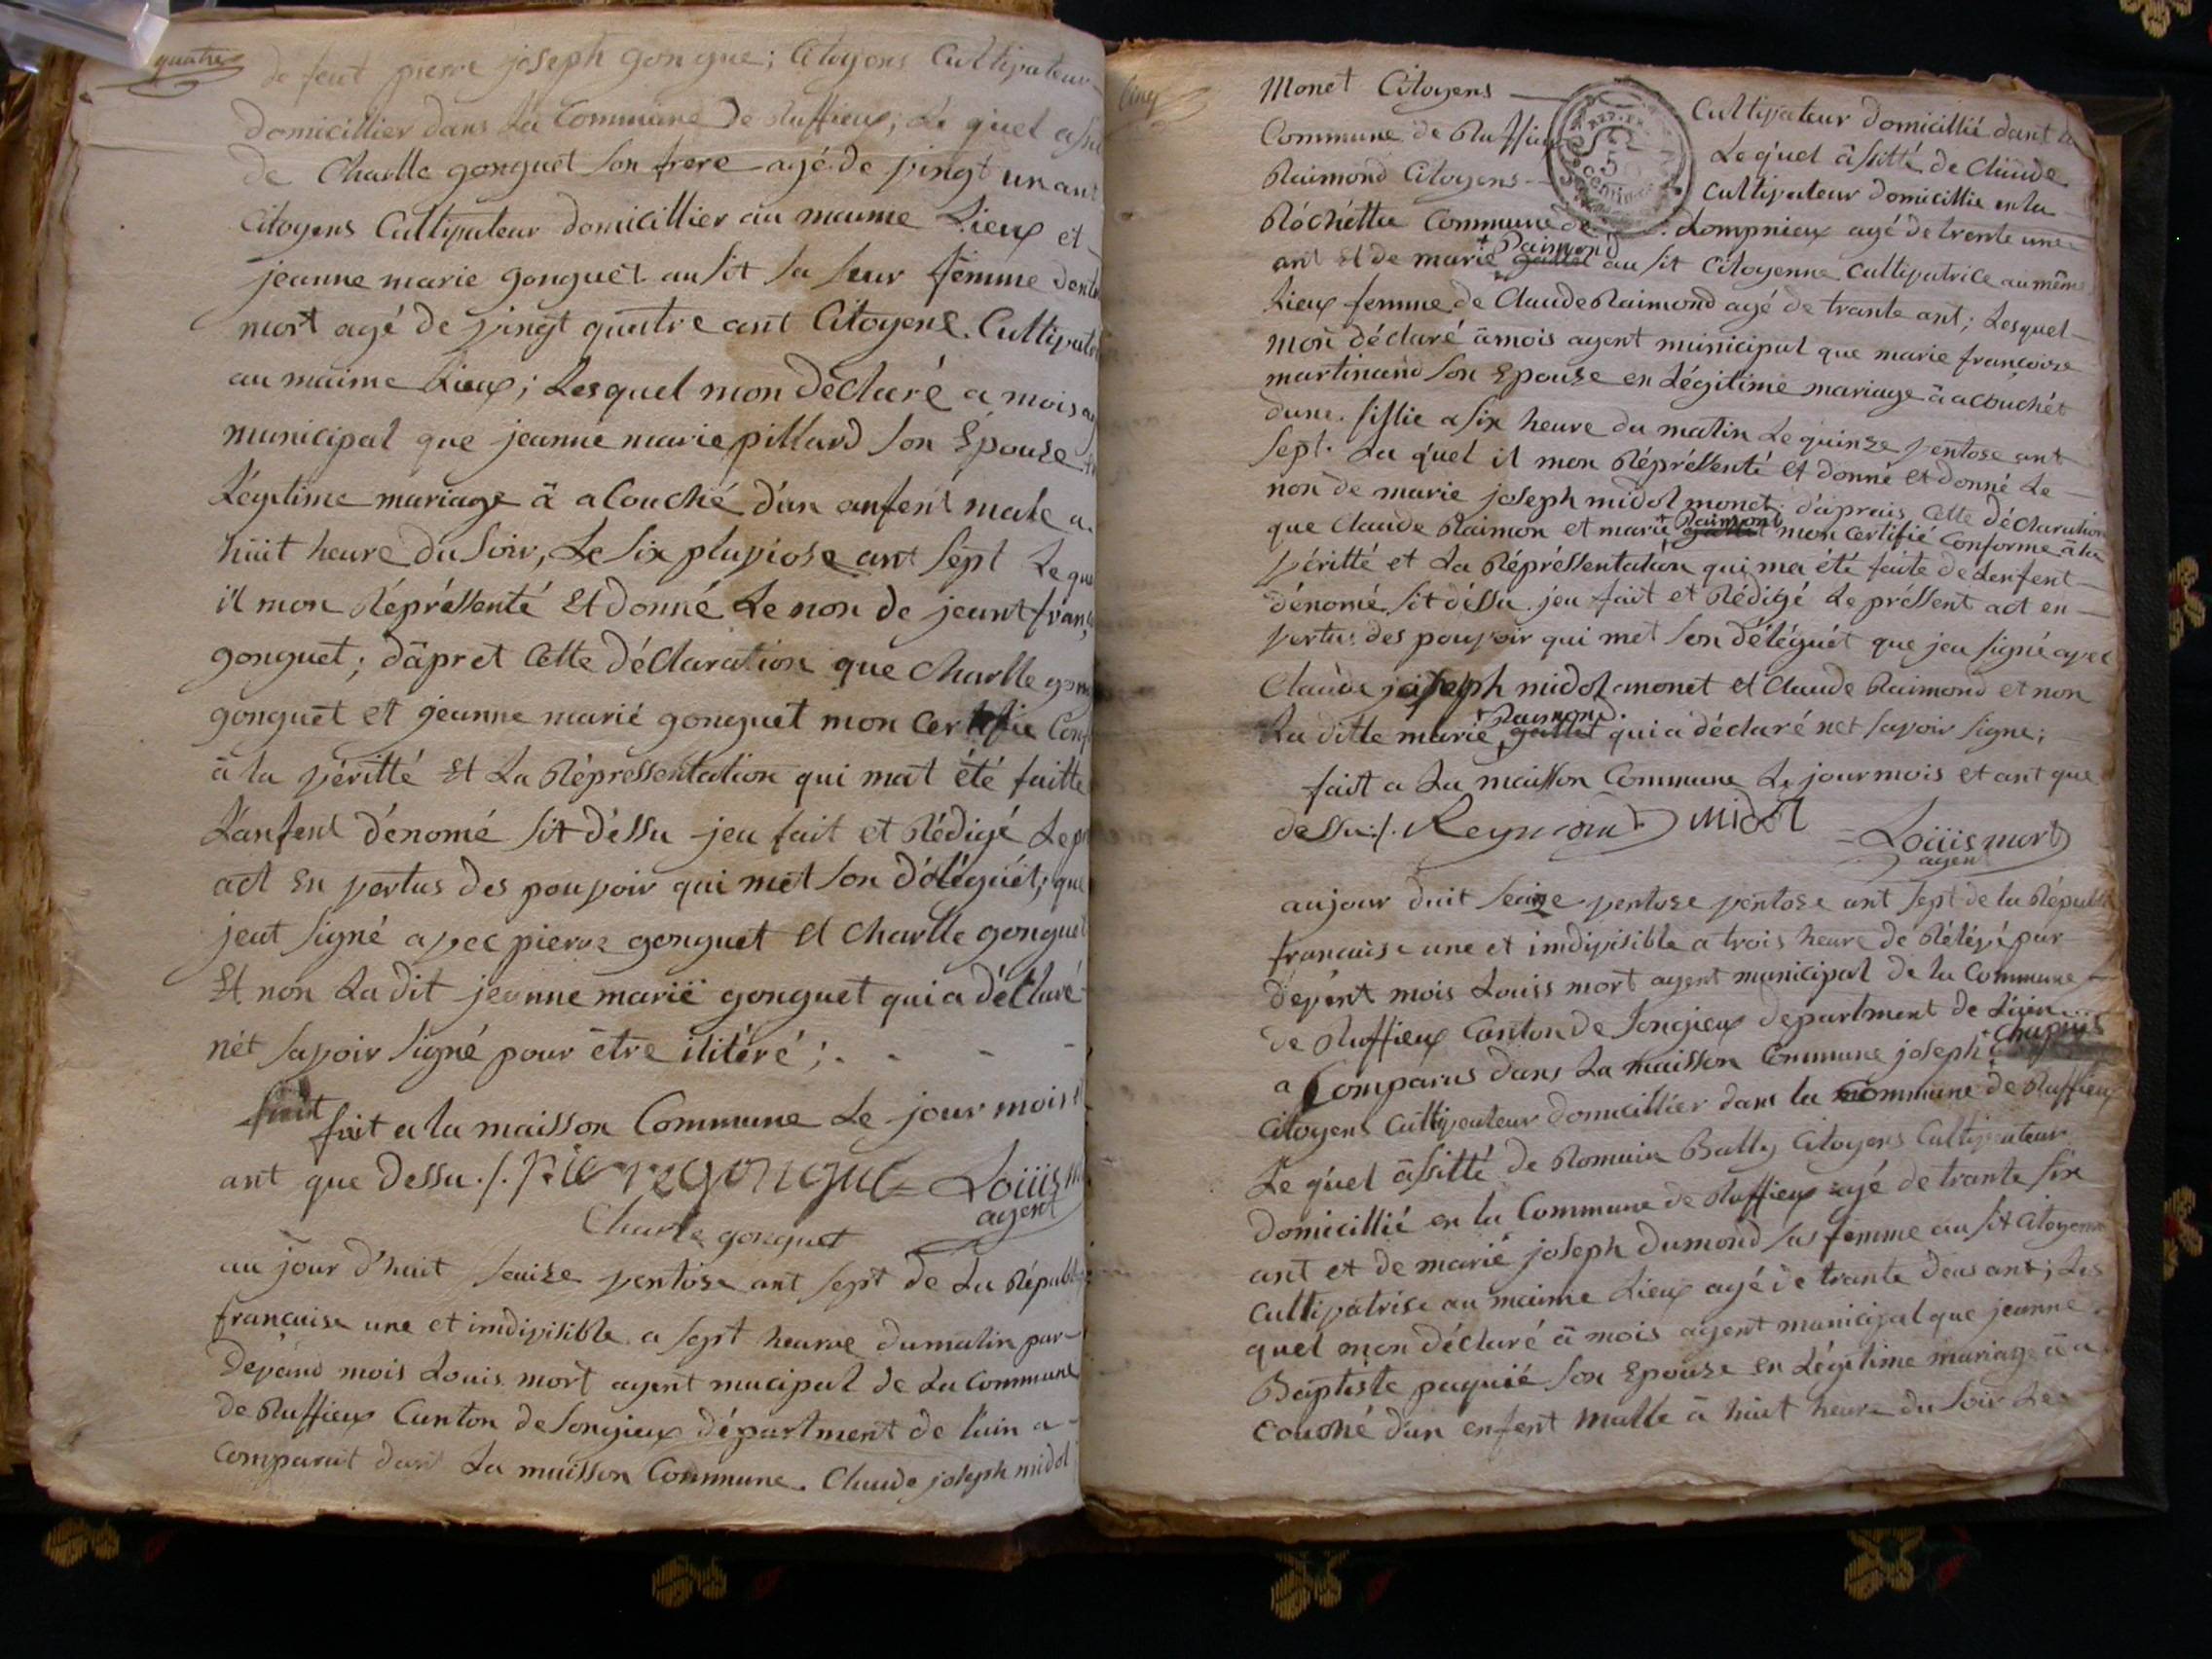 quatre
de feut pierre joseph gongue; Citoyens Cultivateur
domicillier dans La Commune De Ruffieux; Le quel assi
de Charlle gonguet son frere agé de vingt un ant
Citoyens Cultivateur domicillier au maime Lieux et
jeanne marie gonguet ausit sa seur femme
mort agé de vingt quatre ant Citoyene Cultivat
au maime Lieux; Lesquel mon déclaré a mois ag
municipal que jeanne marie pillard son Épouse
Légitime mariage â acouché d'un anfent male a
huit heure du soir, Le six pluviose ant sept Le que
il mon Réprêssenté Et donné Le non de jeant franç
gonguet; d'âpret Cette déclaration que Charlle gong
gonguet et jeanne marié gonguet mon Certifie Conf
â la véritté Et La Répressentation qui mat été faitte
L'anfent dénomé sit déssu jeu fait et Rédigé Le p
act En vertus des pouvoir qui met son déléguét; que
jeut signé avec pierre gonguet Et Charlle gonguet
Et non Ladit jeanne mariё gonguet qui a déclaré
nét savoir signé pour être ilitéré;
fait fait a la maisson Commune Le jour mois et
ant que Dessu./. PierreGongue = Loüis
Charle gonguet agent
au jour d'huit seuise ventose ant sept de La Républi
francaise une et imdivisible a sept heurre dumatin par
Devand mois Louis mort agent mucipal de La Commune
de Ruffieux Canton de Songieux département de l'ain a
Comparut dant La maisson Commune. Claude joseph midol
Cinq
Monet Citoyens — Cultivateur domicillié dant la
Commune de Ruffieux Le quel âssitté de Claude
Raimond Citoyens — Cultivateur domicillié en la
Róchétte Commune de Lompnieux agé de trente une
ant Et de marie + Raimond au sit Citoyenne Cultivatrice au même
Lieux femme de Claude Raimond agé de trante ant; Lesquel
mon déclaré âmois agent municipal que marie françoise
martinand son Epouse en Légitime mariage â acouchét
dune fillie a six heure du matin Le quinse ventose ant
sept. La quel il mon Réprêssenté et donné et donné Le
non de marie joseph midol monet; d'aprais Cette déclaration
que Claude Raimon et marie + Raimond mon Certifié Conforme à la
véritté et La Réprêssentation qui ma été faite de Lenfent
dénomé sit déssu jeu fait et Rédigé Le préssent act en
vertus des pouvoir qui met son déléguét que jeu signé avec
Claude joseph midol monet et Claude Raimond et non
La ditte marie + Raimond. qui a déclaré net savoir signe;
fait a La maisson Commune Le jour mois et ant que
dessu./. Reymond midol = Loüis mort
agent
aujour duit seaize ventose ventose ant sept de la Républi
francaise une et imdivisible a trois heure de Rélevé par
devent mois Louiss mort agent municipal de la Commune
de Ruffieux Canton de Songieux department de L'ain
a Comparus dans La maisson Commune joseph + Chapuis
Citoyens Cultivateur domicillier dans la Commune de Ruffieux
Le quel âssitté de Romain Bally Citoyens Cultivateur
domicillié en la Commune de Ruffieux agé de trante six
ant et de marie joseph dumond sas femme au sit Citoyenne
Cultivatrise au maime Lieux agé de trante deus ant; Les
quel mon déclaré â mois agent municipal que jeanne
Baptiste paquié son Epouse en Légitime mariage â a
couché d'un enfent malle â huit heure du soir Le